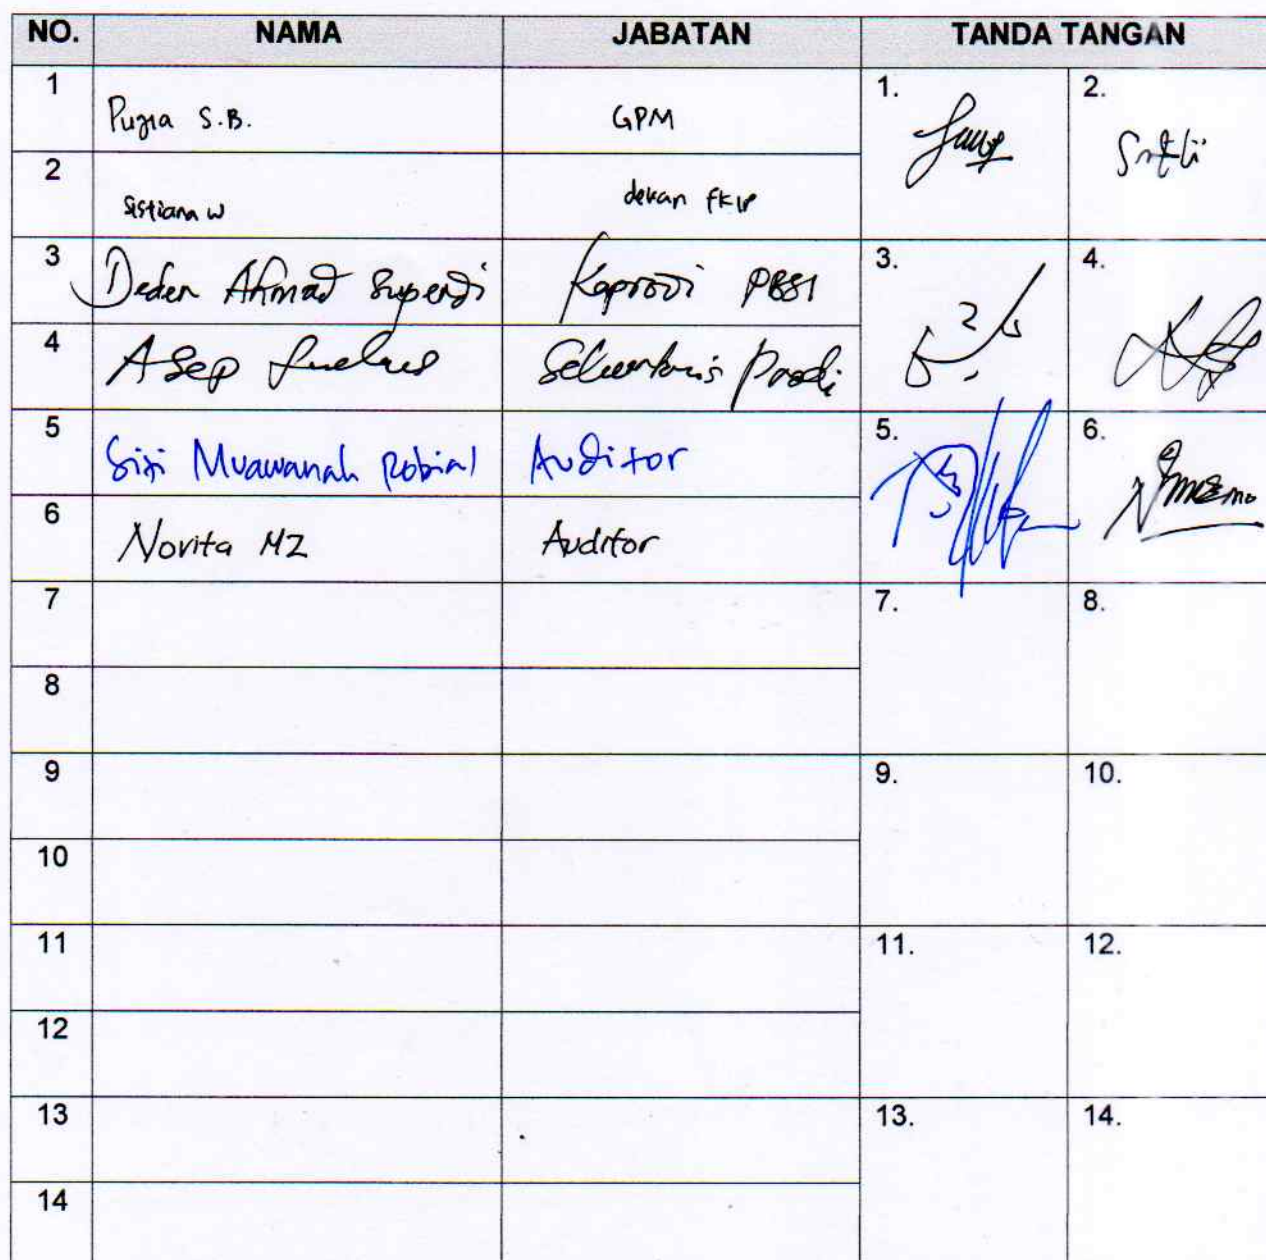 NO. NAMA JABATAN TANDA TANGAN
1 Pujia S.B. GPM 1. 2.
2 Sistiana W dekan FKIP
3 Deden Ahmad Supendi Kaprodi PBSI 3. 4.
4 Asep Sekertaris Prodi
5 Muawanah Robial Auditor 5. 6.
6 Norita MZ Auditor
7 7. 8.
8
9 9. 10.
10
11 11. 12.
12
13 13. 14.
14